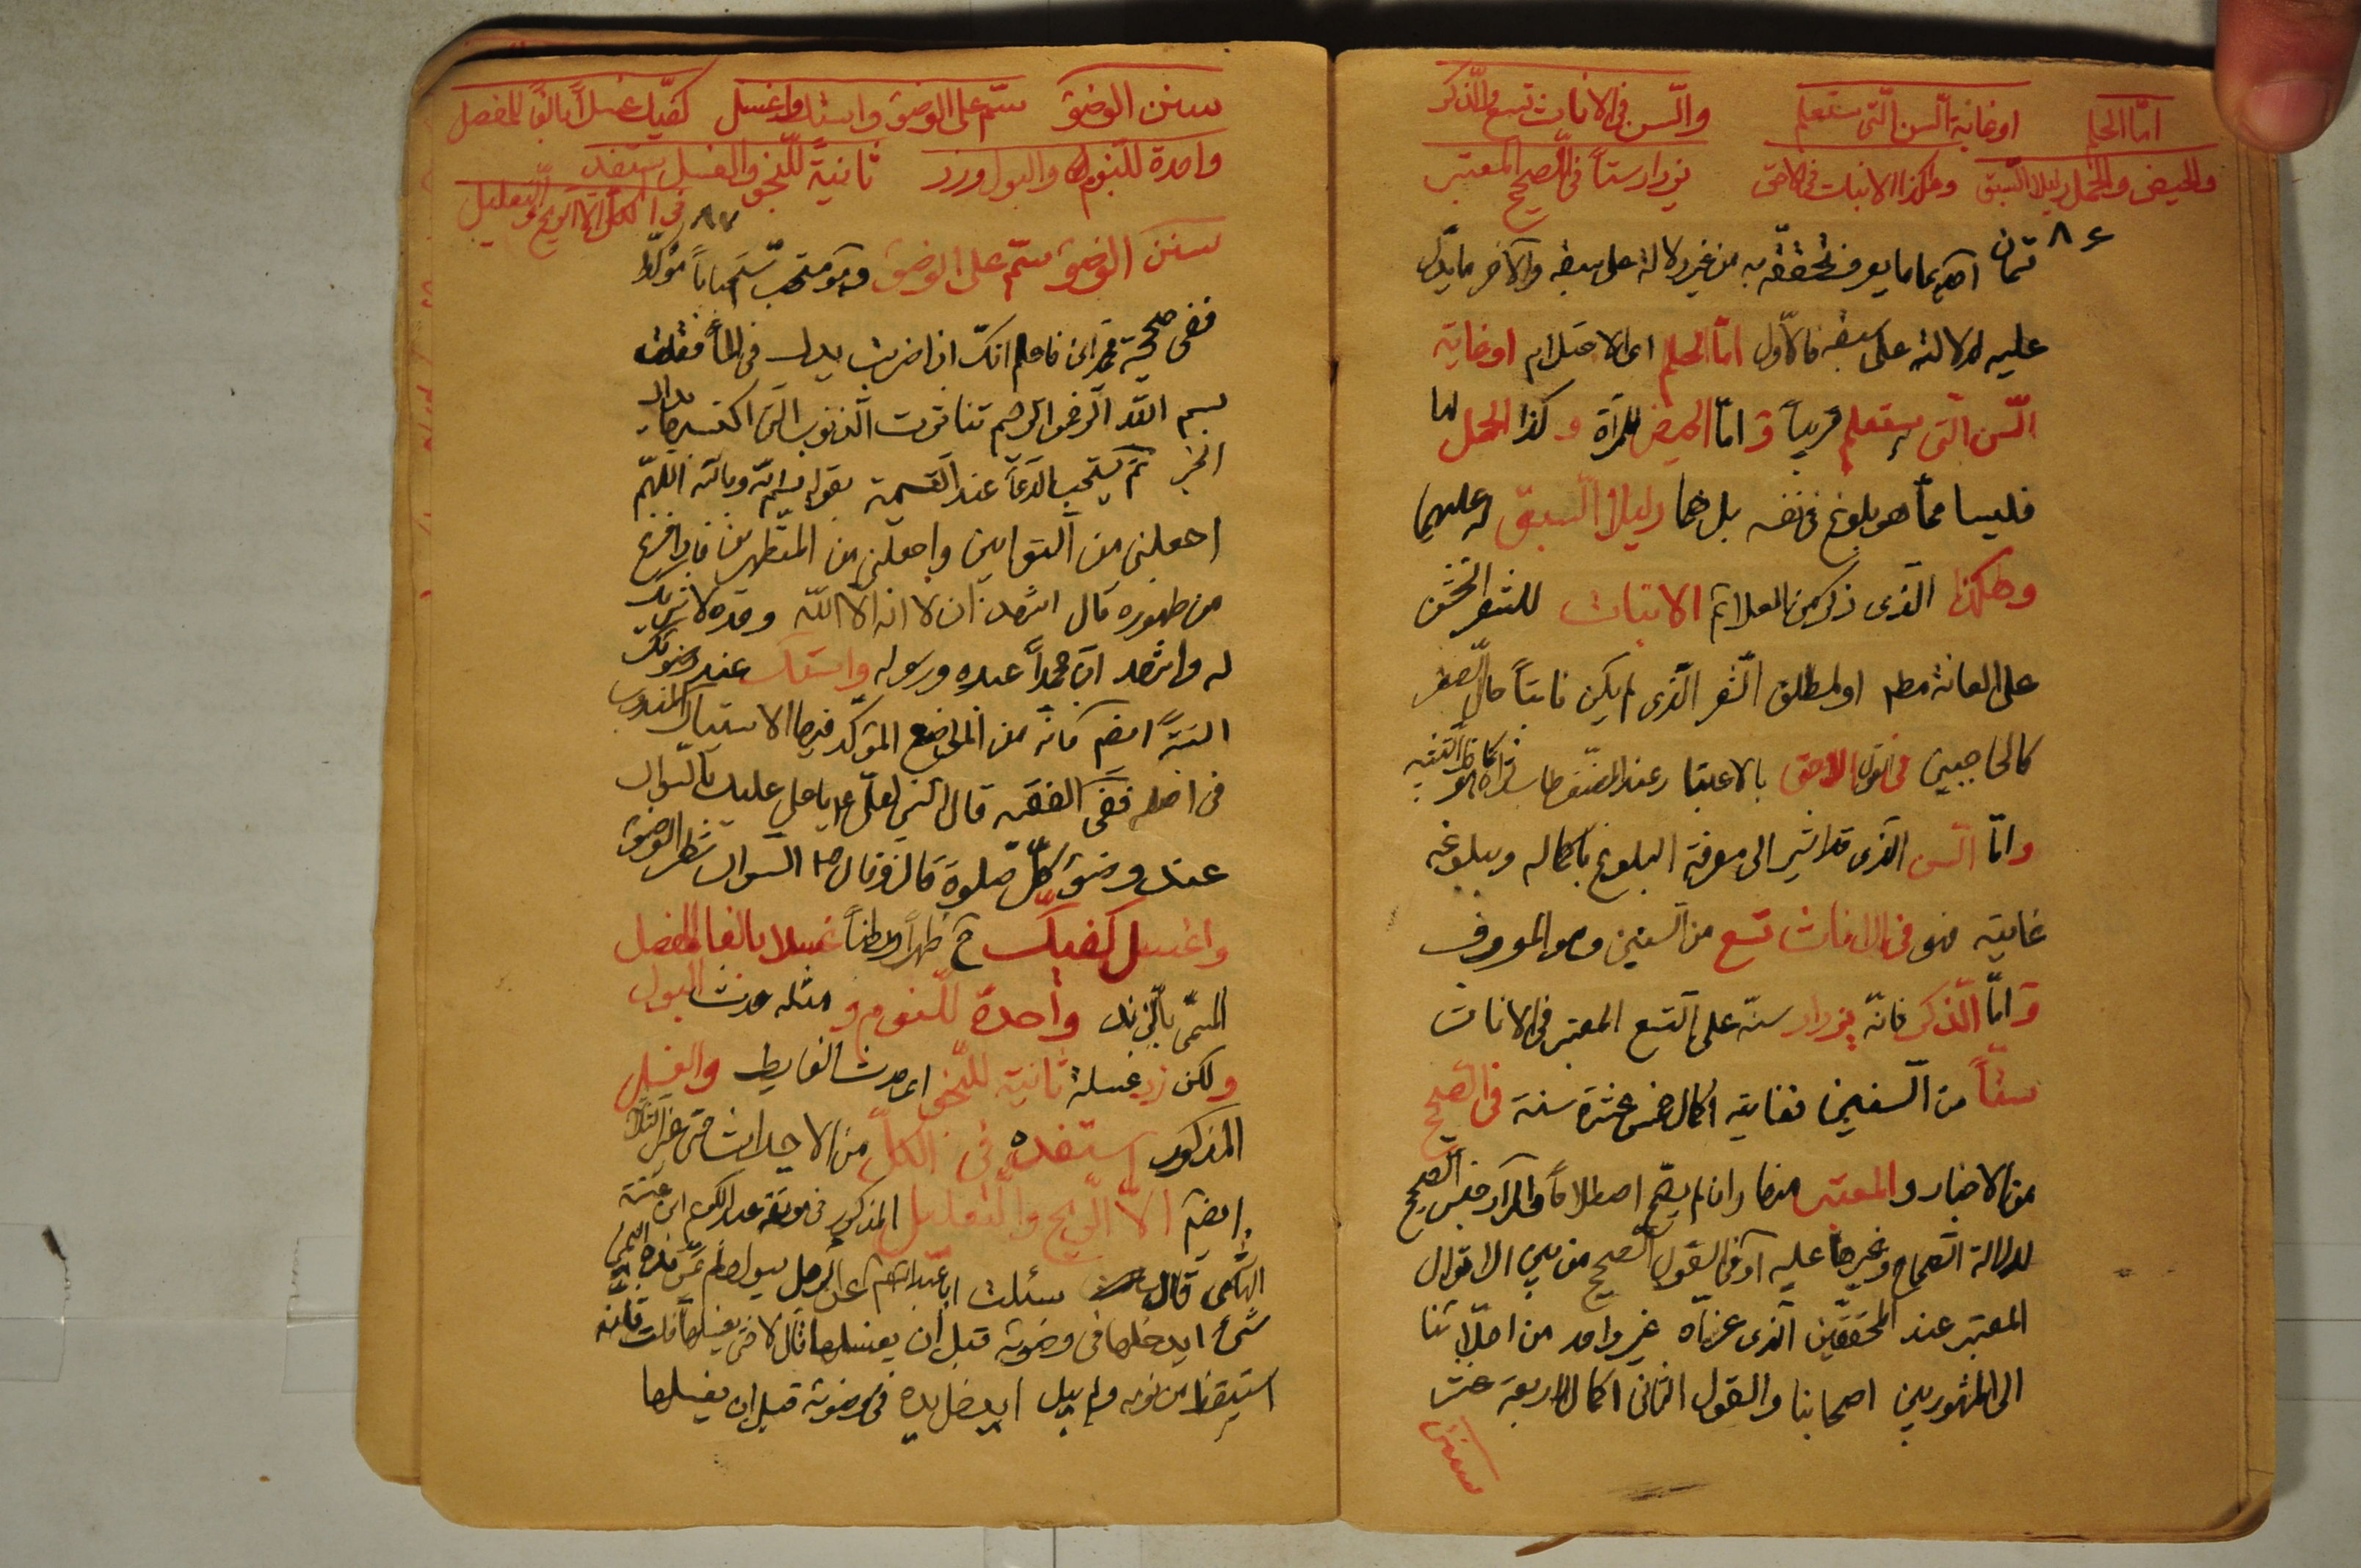 امّا الحلم او غاية السن الّتي ستعلم والسن في الاناث تسع والذكر
والحيض والحمل دليلا السّبق وهكذا الانبات في الاحق يزداد ستاً في الصّحيح المعتبر
٨٦
قسمان احدهما ما يعرف تحققه به من غير دلالة على سبقه والآخر ما يدل
عليه لدلالته على سبقه فالاول امّا الحلم اى الاحتلام او غاية
السّن الّتي ستعلم قريباً و امّا الحيض للمرأة و كذا الحمل لها
فليسا ممّا هو بلوغ في نفسه بل هما دليلا السّبق له عليهما
وهكذا الّذى ذكر من العلائم الانبات للشعر الخشن
على العانة مطلقا او لمطلق الشعر الّذى لم يكن نابتاً حال الصّغر
كالحاجبين في القول الاحق بالاعتبار عند المصنف طاب ثراه
وامّا السّن الّذى قد اشير الى معرفة البلوغ باكماله وببلوغه
غايته فهو في الاناث تسع من السنين وهو المعروف
و امّا الذّكر فانّه يزداد سنّه على التسع المعتبر في الاناث
ستّاً من السنين فغايته اكمال خمس عشرة سنة في الصّحيح
من الاخبار والمعتبر منها وان لم يصحّ اصطلاحاً والمراد جنس الصّحيح
لدلالة الصّحاح وغيرها عليه او في القول الصّحيح من بين الاقوال
المعتبر عند المحقّقين الّذى عزاه غير واحد من اجلّائنا
الى المشهور بين اصحابنا والقول الثاني اكمال اربعة عشر
سنن
سنن الوضوء سمّ على الوضوء واستك واغسل كفيّك غسلاً بالغاً للمفصل
واحدة للنّوم والبول وزد ثانية للنجو والغسل ستفد
في الكل الّا الريح والتعليل
٨٧
سنن الوضوء سمّ على الوضوء وهو مستحب استحباباً مؤكّداً
ففي صحيحة فاعلم انّك اذا ضربت يدك في الماء فقلت
بسم اللّه الرحمن الرحيم تناثرت الذنوب الّتي اكتسبتها يداك
الخبر ثم يستحب الدّعاء عند التسمية بقوله بسم اللّه وباللّه اللّهمّ
اجعلني من التوابين واجعلني من المتطهرين فاذا فرغ
من طهوره قال اشهد ان لا اله الّا اللّه وحده لا شريك
له واشهد انّ محمّداً عبده ورسوله واستك عند وضوئك
البتة ايضم فانه من المواضع المؤكّد فيها الاستياك المندوب
في اصله ففي الفقيه قال النبي لعلي ع يا علي عليك بالسواك
عند وضوء كلّ صلوة قال وقال ص السواك شطر الوضوء
واغسل كفيك ظهراً وبطناً غسلا بالغا المفصل
المسمّى بالزند واحدة للنوم و مثله حدث البول
ولكن زد غسلة ثانية للنجو اى حدث الغايط والغسل
المذكور استفده في الكلّ من الاحداث
ايضم الّا الرّيح والتّعليل المذكور في موثقة عبد الكريم ابن عتبة
الهاشمي قال سئلت ابا عبد اللّه ع عن الرجل يبول ولم يمسّ يده اليمنى
شيء ايدخلها في وضوئه قبل ان يغسلها قال لا حتى يغسلها قلت فانه
استيقظ من نومه ولم يبل ايدخل يده في وضوئه قبل ان يغسلها